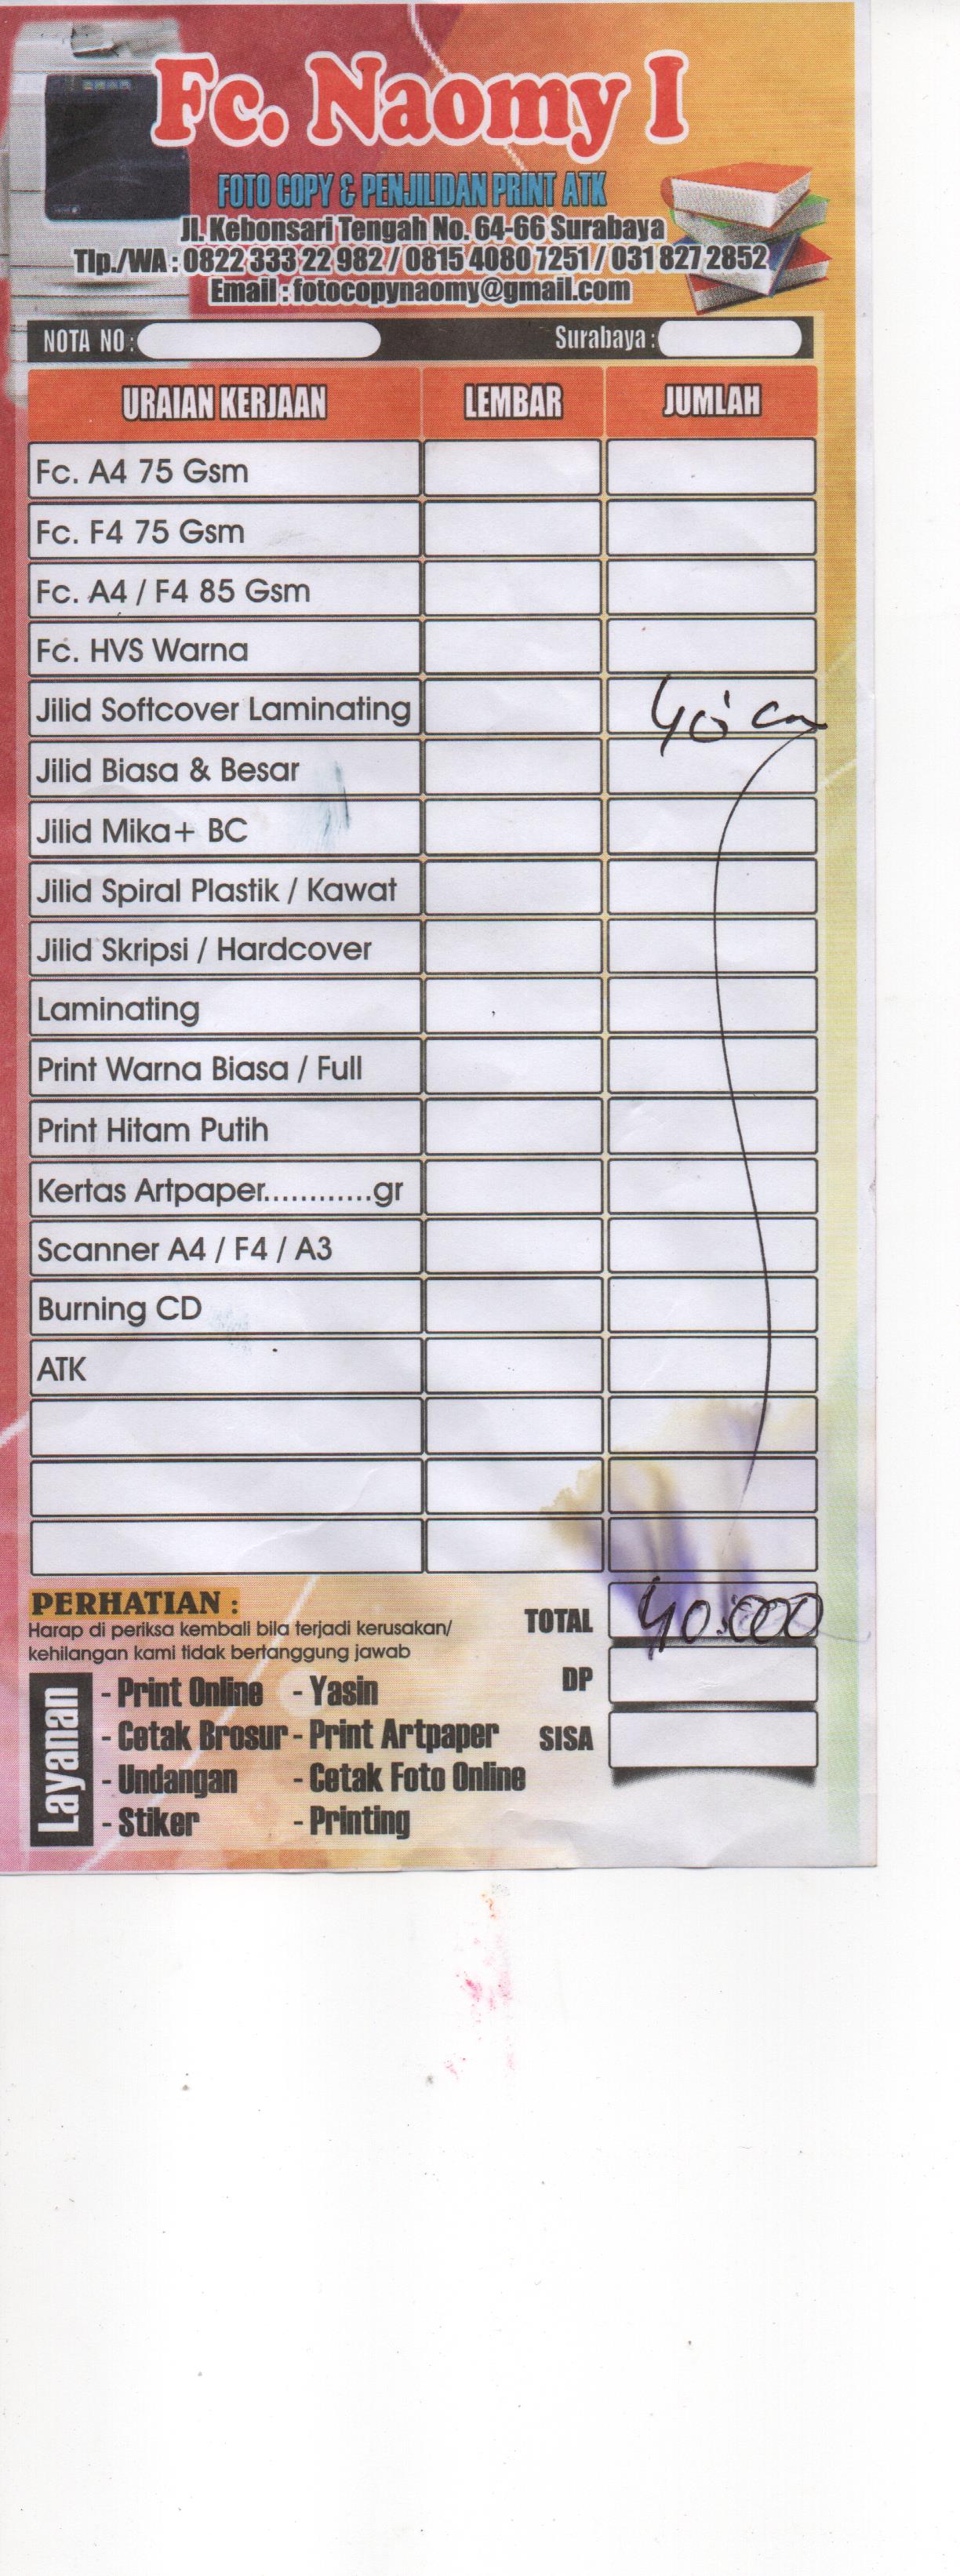 Fc. Naomy I
FOTO COPY & PENJILIDAN PRINT ATK
Jl. Kebonsari Tengah No. 64-66 Surabaya
Tlp./WA : 0822 333 22 982 / 0815 4080 7251 / 031 827 2852
Email : fotocopynaomy@gmail.com
NOTA NO : Surabaya :
URAIAN KERJAAN LEMBAR JUMLAH
Fc. A4 75 Gsm
Fc. F4 75 Gsm
Fc. A4 / F4 85 Gsm
Fc. HVS Warna
Jilid Softcover Laminating
Jilid Biasa & Besar
Jilid Mika+ BC
Jilid Spiral Plastik / Kawat
Jilid Skripsi / Hardcover
Laminating
Print Warna Biasa / Full
Print Hitam Putih
Kertas Artpaper............gr
Scanner A4 / F4 / A3
Burning CD
ATK
PERHATIAN :
Harap di periksa kembali bila terjadi kerusakan/
kehilangan kami tidak bertanggung jawab
TOTAL 40.000
DP
SISA
Layanan
- Print Online - Yasin
- Cetak Brosur - Print Artpaper
- Undangan - Cetak Foto Online
- Stiker - Printing